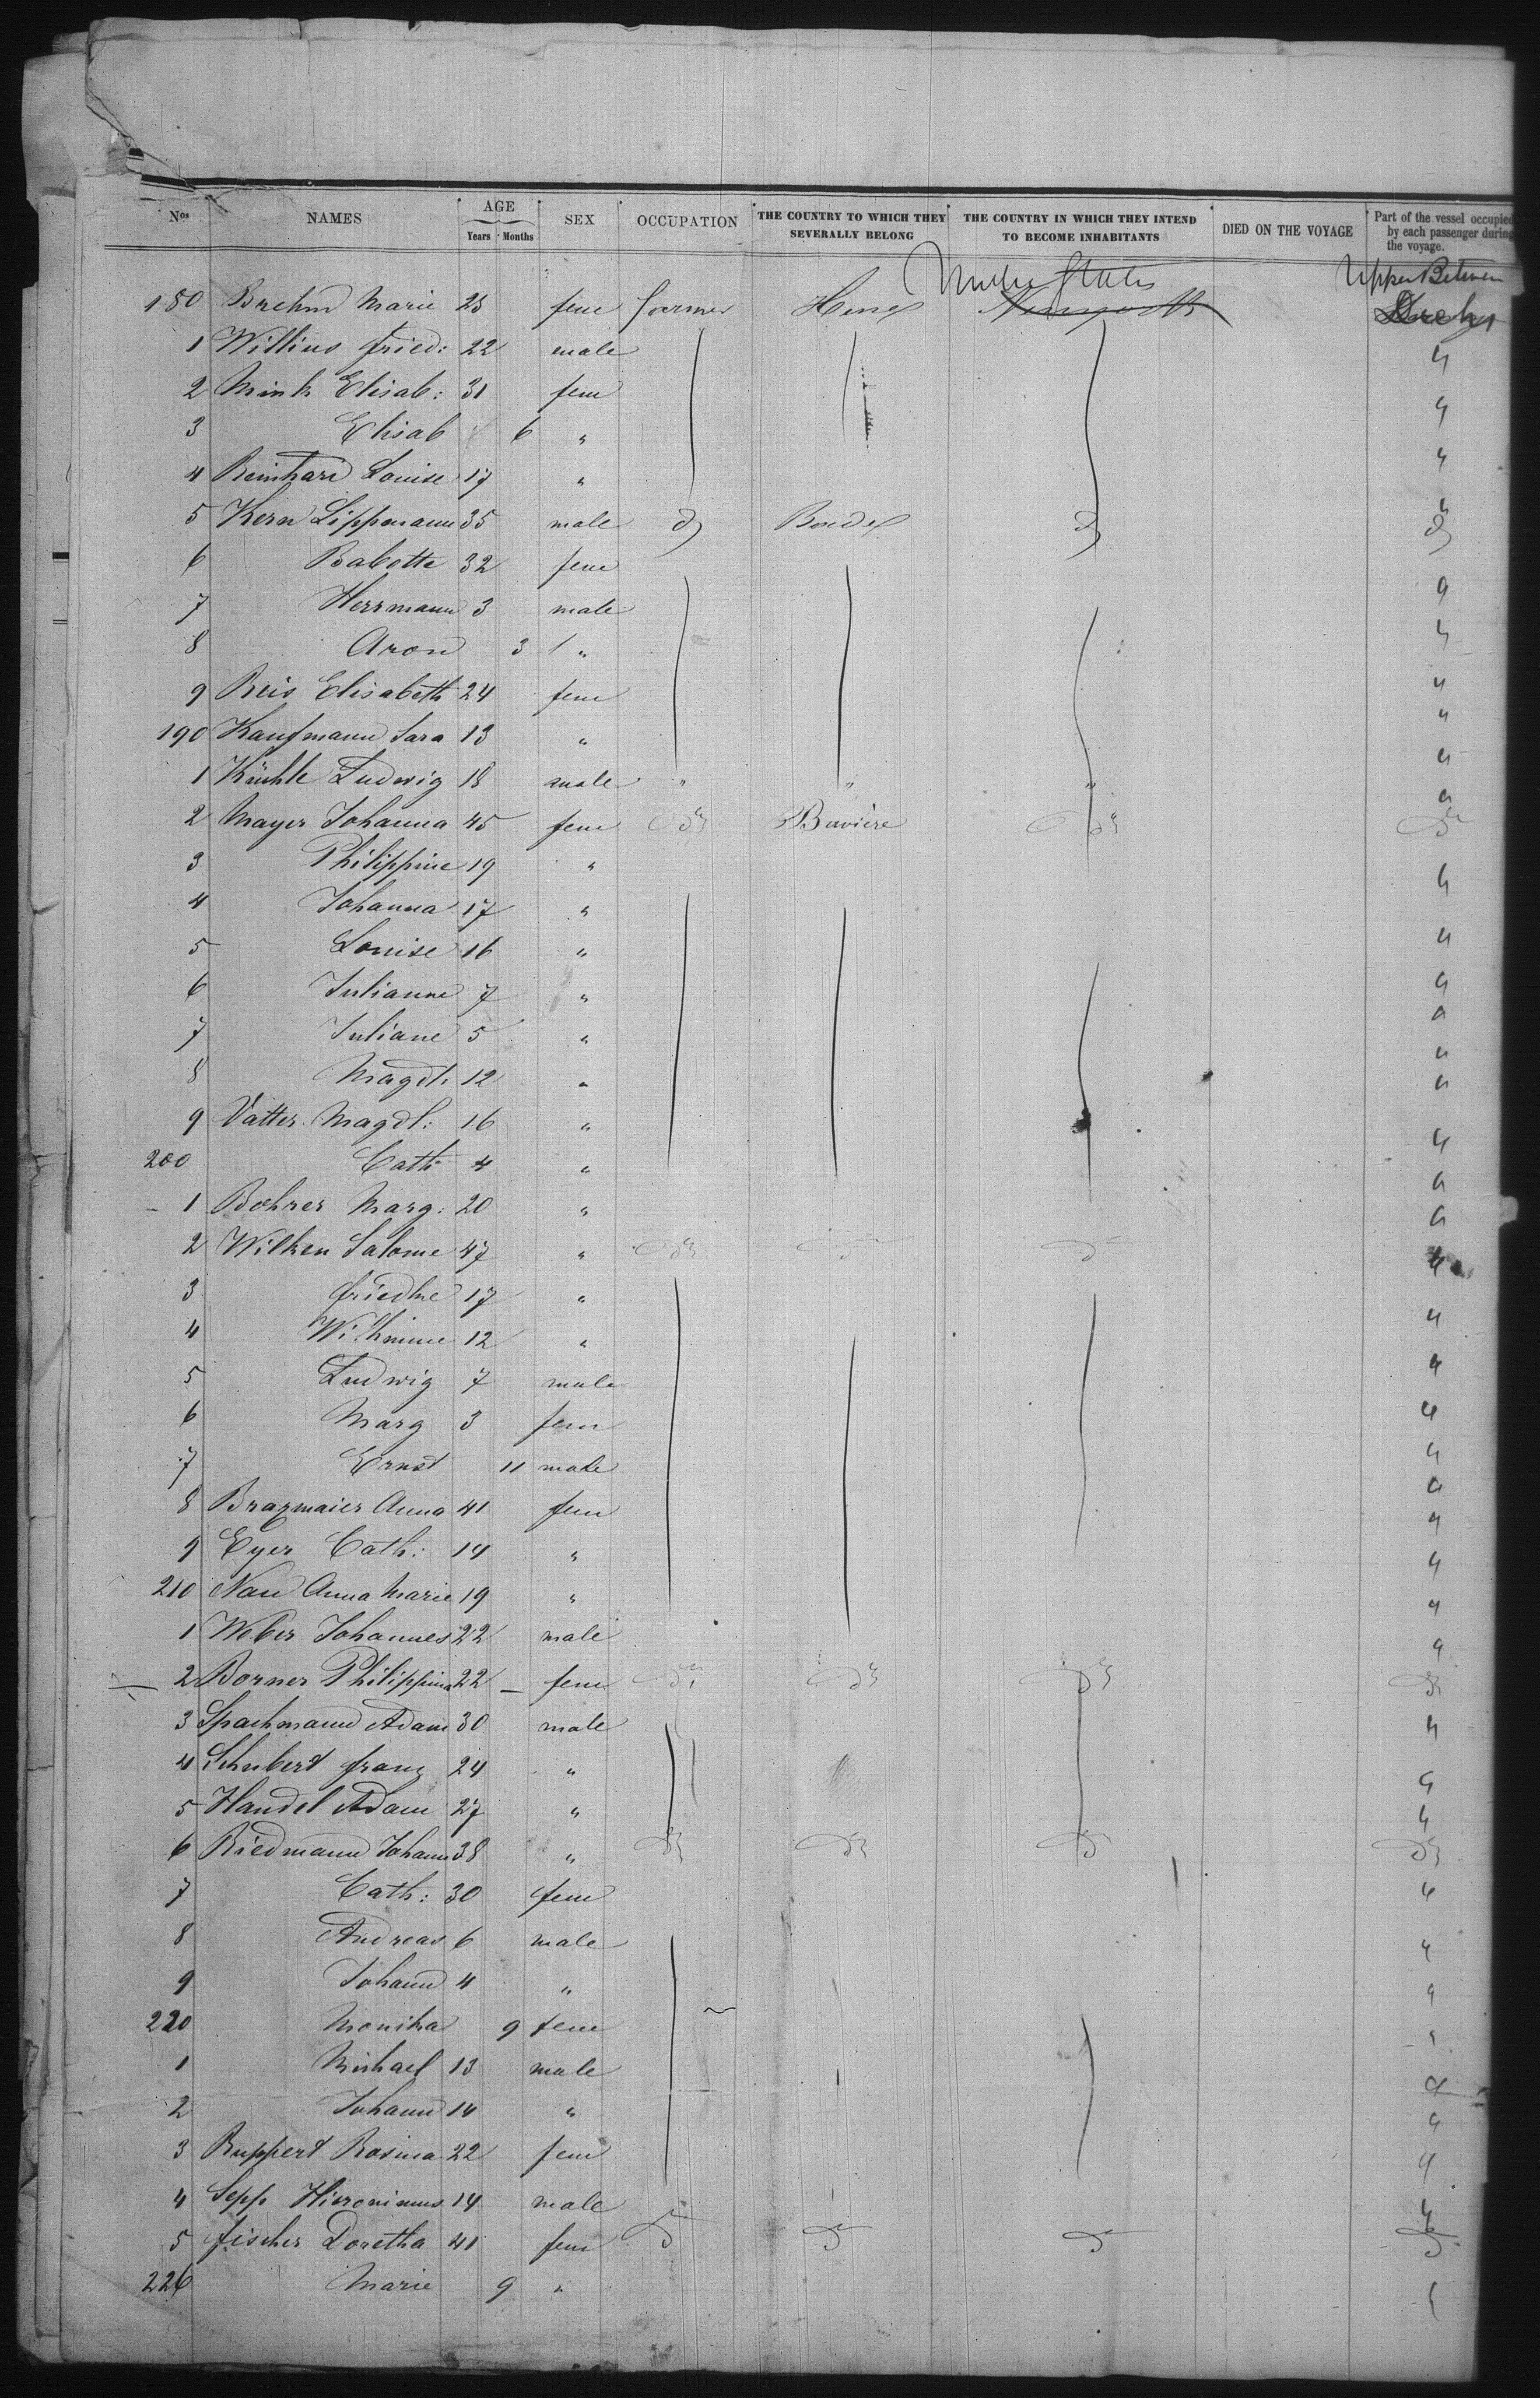 Nos NAMES AGE Years Months SEX OCCUPATION THE COUNTRY TO WHICH THEY SEVERALLY BELONG THE COUNTRY IN WHICH THEY INTEND TO BECOME INHABITANTS DIED ON THE VOYAGE Part of the vessel occupied by each passenger during the voyage.
United States Upper Between
180 Brehm Marie 25 fem farmer Hesse Decks
1 Willius Fried: 22 male "
2 Mink Elisab: 31 fem "
3 Elisab 6 "
4 Reinhard Louise 17 " "
5 Kern Lippmann 35 male do Bade do do
6 Babette 32 fem
7 Herrmann 3 male "
8 Aron 3 " "
9 Reis Elisabeth 24 fem "
190 Kaufmann Sara 13 " "
1 Küchle Ludwig 18 male " " " "
2 Mayer Johanna 45 fem do Bavière do do
3 Philippine 19 " "
4 Johanna 17 "
5 Louise 16 " "
6 Julianne 7 " "
7 Juliane 5 " "
8 Magdl. 12 " "
9 Vatter Magdl: 16 " "
200 Cath 4 " "
1 Bohrer Marg: 20 " "
2 Wilken Salome 47 " do do do "
3 Friedke 17 "
4 Wilhmine 12 " "
5 Ludwig 7 male "
6 Marg 3 fem "
7 Ernst 11 male "
8 Brazmaier Anna 41 fem "
9 Eyer Cath: 14 " "
210 Nau Anna Marie 19 " "
1 Weber Johannes 22 male "
2 Borner Philippina 22 – fem do do do do
3 Spachmann Adam 30 male "
4 Schubert Franz 24 " "
5 Handel Adam 27 " "
6 Riedmann Johann 38 " do do do do
7 Cath: 30 fem "
8 Andreas 6 male "
9 Johann 4 " "
220 Monika 9 fem "
1 Michael 13 male "
2 Johann 14 " "
3 Ruppert Rosina 22 fem "
4 Sepp Hieronimus 14 male "
5 Fischer Doretha 41 fem do do do do
226 Marie 9 "